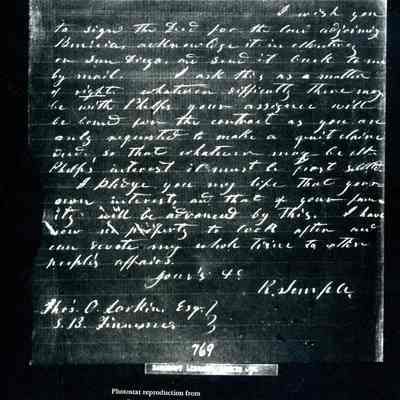 I wish you
to sign the Deed for the land adjoining
Benicia, acknowledge it in
or San Diego, and send it back to me
by mail. I ask this as a matter
of right, whatever difficulty there may
be with Phelps your assignee will
be bound for the contract as you are
only requested to make a quit claim
deed, so that whatever may be
Phelp's interest it must be first settled
I pledge you my life that your
own interest, and that of your fam
ily will be advanced by this. I have
now no property to look after and
can devote my whole time to other
people's affairs.
Your's &c
R. Semple
Thos. O. Larkin, Esq.
S. B.
769
Photostat reproduction from